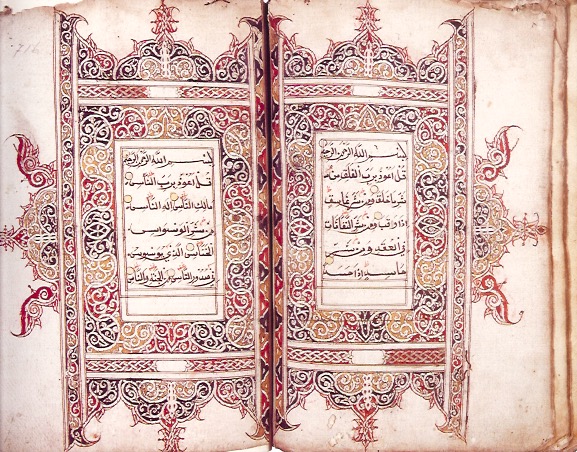 بسم الله الرحمن الرحيم
قل اعوذ برب الفلق من
شر ما خلق ومن شر غاسق
اذا وقب ومن شر النفاثات
في العقد ومن شر
حاسد اذا حسد
بسم الله الرحمن الرحيم
قل اعوذ برب الناس
ملك الناس اله الناس
من شر الوسواس
الخناس الذي يوسوس
في صدور الناس من الجنة والناس